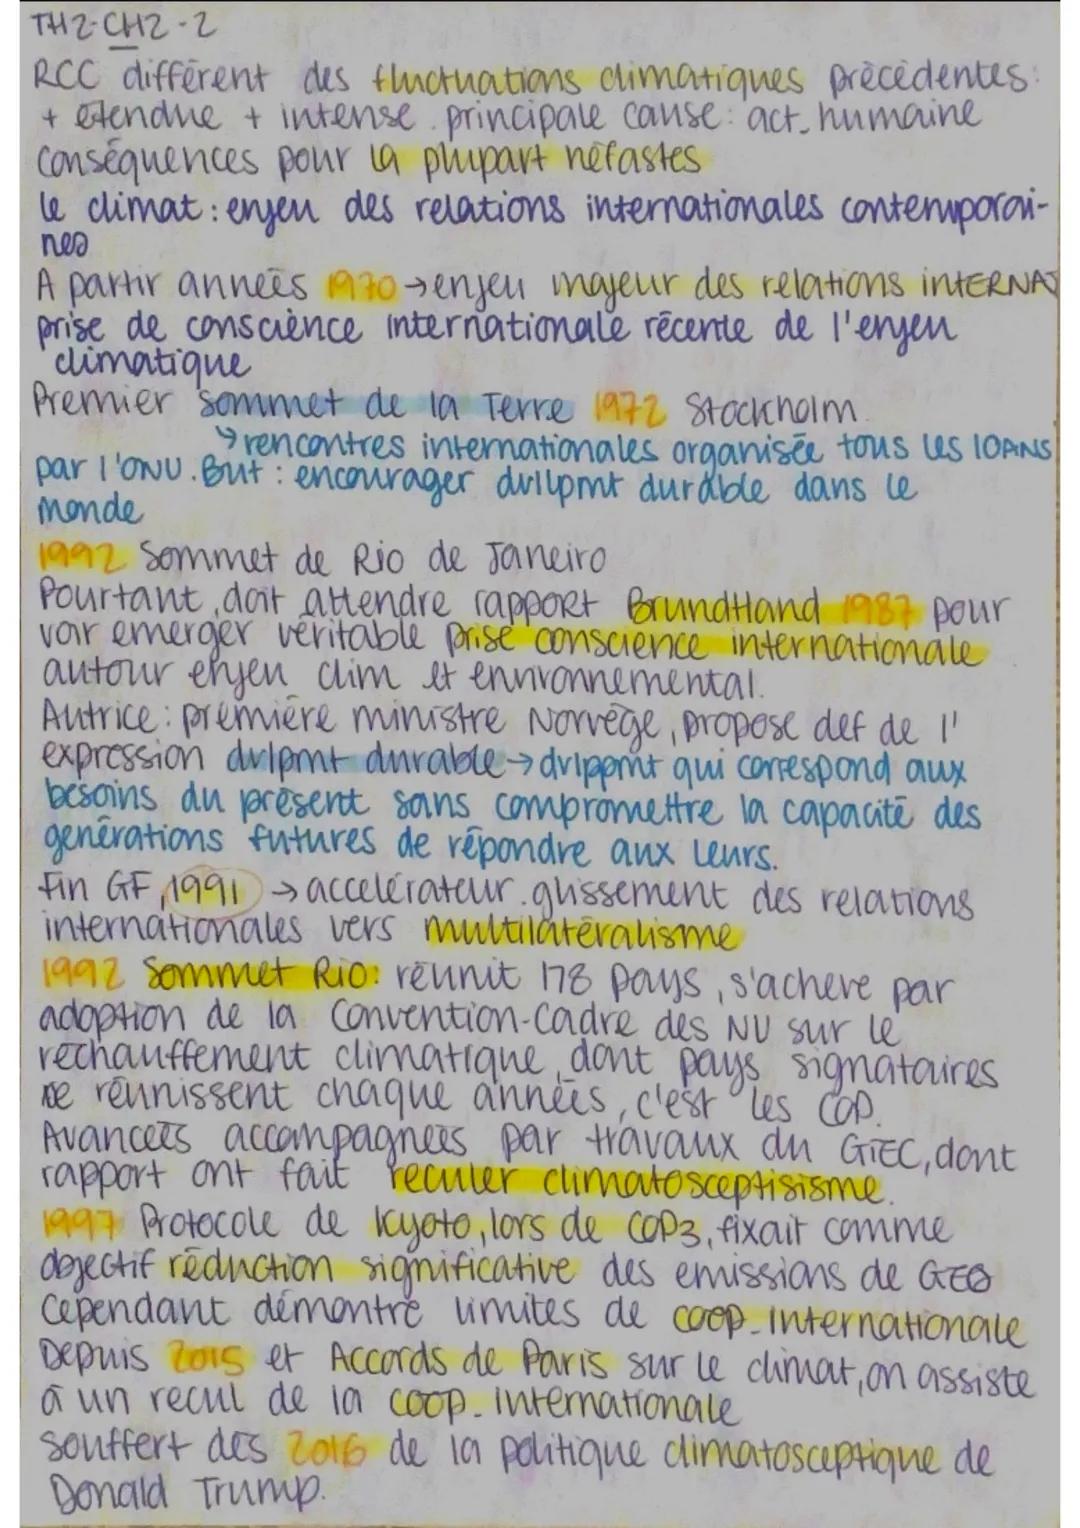 TH2-CH2-2
RCC différent des fluctuations climatiques précédentes:
+ étendue + intense. principale cause: act. humaine
conséquences pour la plupart néfastes
le climat : enjeu des relations internationales contemporai-
nes
A partir années 1970 → enjeu majeur des relations intERNAT
prise de conscience internationale récente de l'enjeu
climatique
Premier sommet de la Terre 1972 Stockholm.
↳ rencontres internationales organisée tous les 10ANS
par l'ONU. But : encourager dvlpmt durable dans le
monde
1992 Sommet de Rio de Janeiro
Pourtant, doit attendre rapport Brundtland 1987 pour
voir emerger véritable prise conscience internationale
autour enjeu clim et environnemental.
Autrice : première ministre Norvège, propose def de l'
expression dvlpmt durable → dvlppmt qui correspond aux
besoins du présent sans compromettre la capacité des
générations futures de répondre aux leurs.
Fin GF, 1991 → accelérateur. glissement des relations
internationales vers multilatéralisme
1992 Sommet Rio: réunit 178 pays, s'achève par
adoption de la Convention-Cadre des NU sur le
réchauffement climatique, dont pays signataires
se réunissent chaque années, c'est les COP.
Avancées accompagnées par travaux du GIEC, dont
rapport ont fait reculer climatosceptisisme.
1997 Protocole de Kyoto, lors de COP3, fixait comme
objectif réduction significative des emissions de GES
Cependant démontre limites de coop. internationale
Depuis 2015 et Accords de Paris sur le climat, on assiste
à un recul de la coop. internationale
Souffert dès 2016 de la politique climatosceptique de
Donald Trump.